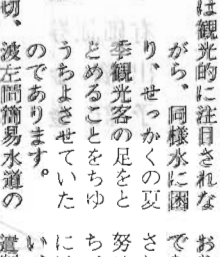 は観光的に注目されな
がら、同様水に困
り、せっかくの夏
季観光客の足をと
どめることをちゆ
うちよさせていた
のであります。
切、波左間簡易水道の
お
で
さ
努
ち
に
い